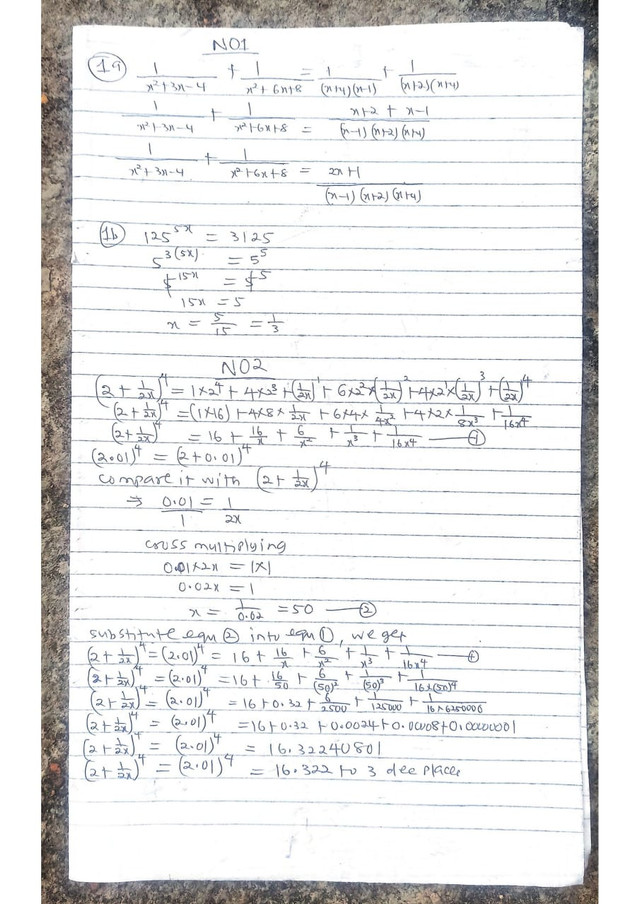 NO1
1a 1/(x²+3x-4) + 1/(x²+6x+8) = 1/((x+4)(x-1)) + 1/((x+2)(x+4))
1/(x²+3x-4) + 1/(x²+6x+8) = (x+2 + x-1)/((x-1)(x+2)(x+4))
1/(x²+3x-4) + 1/(x²+6x+8) = (2x+1)/((x-1)(x+2)(x+4))
1b 125^(5x) = 3125
5^(3(5x)) = 5^5
5^(15x) = 5^5
15x = 5
x = 5/15 = 1/3
NO2
(2 + 1/2x)^4 = 1×2^4 + 4×2^3 × (1/2x)^1 + 6×2²×(1/2x)² + 4×2^1×(1/2x)^3 + (1/2x)^4
(2 + 1/2x)^4 = (1×16) + 4×8×1/2x + 6×4×1/4x² + 4×2×1/8x³ + 1/16x⁴
(2 + 1/2x)^4 = 16 + 16/x + 6/x² + 1/x³ + 1/16x⁴ — ①
(2.01)^4 = (2+0.01)^4
compare it with (2 + 1/2x)^4
⇒ 0.01/1 = 1/2x
cross multiplying
0.01×2x = 1×1
0.02x = 1
x = 1/0.02 = 50 — ②
substitute equ ② into equ ①, we get
(2 + 1/2x)^4 = (2.01)^4 = 16 + 16/x + 6/x² + 1/x³ + 1/16x⁴ — ①
(2 + 1/2x)^4 = (2.01)^4 = 16 + 16/50 + 6/(50)² + 1/(50)³ + 1/16×(50)^4
(2 + 1/2x)^4 = (2.01)^4 = 16 + 0.32 + 6/2500 + 1/125000 + 1/16×6250000
(2 + 1/2x)^4 = (2.01)^4 = 16 + 0.32 + 0.0024 + 0.00008 + 0.00000001
(2 + 1/2x)^4 = (2.01)^4 = 16.32240801
(2 + 1/2x)^4 = (2.01)^4 = 16.322 to 3 dec places